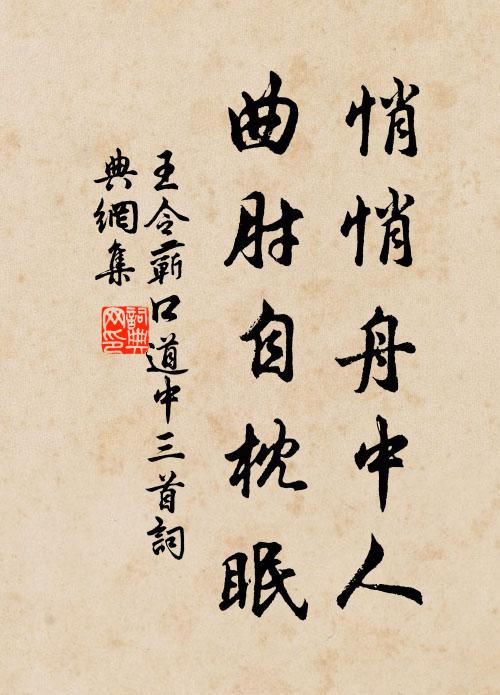 悄悄舟中人
曲肘自枕眠
王令蘄口道中三首詞
典網集
詞典
网印